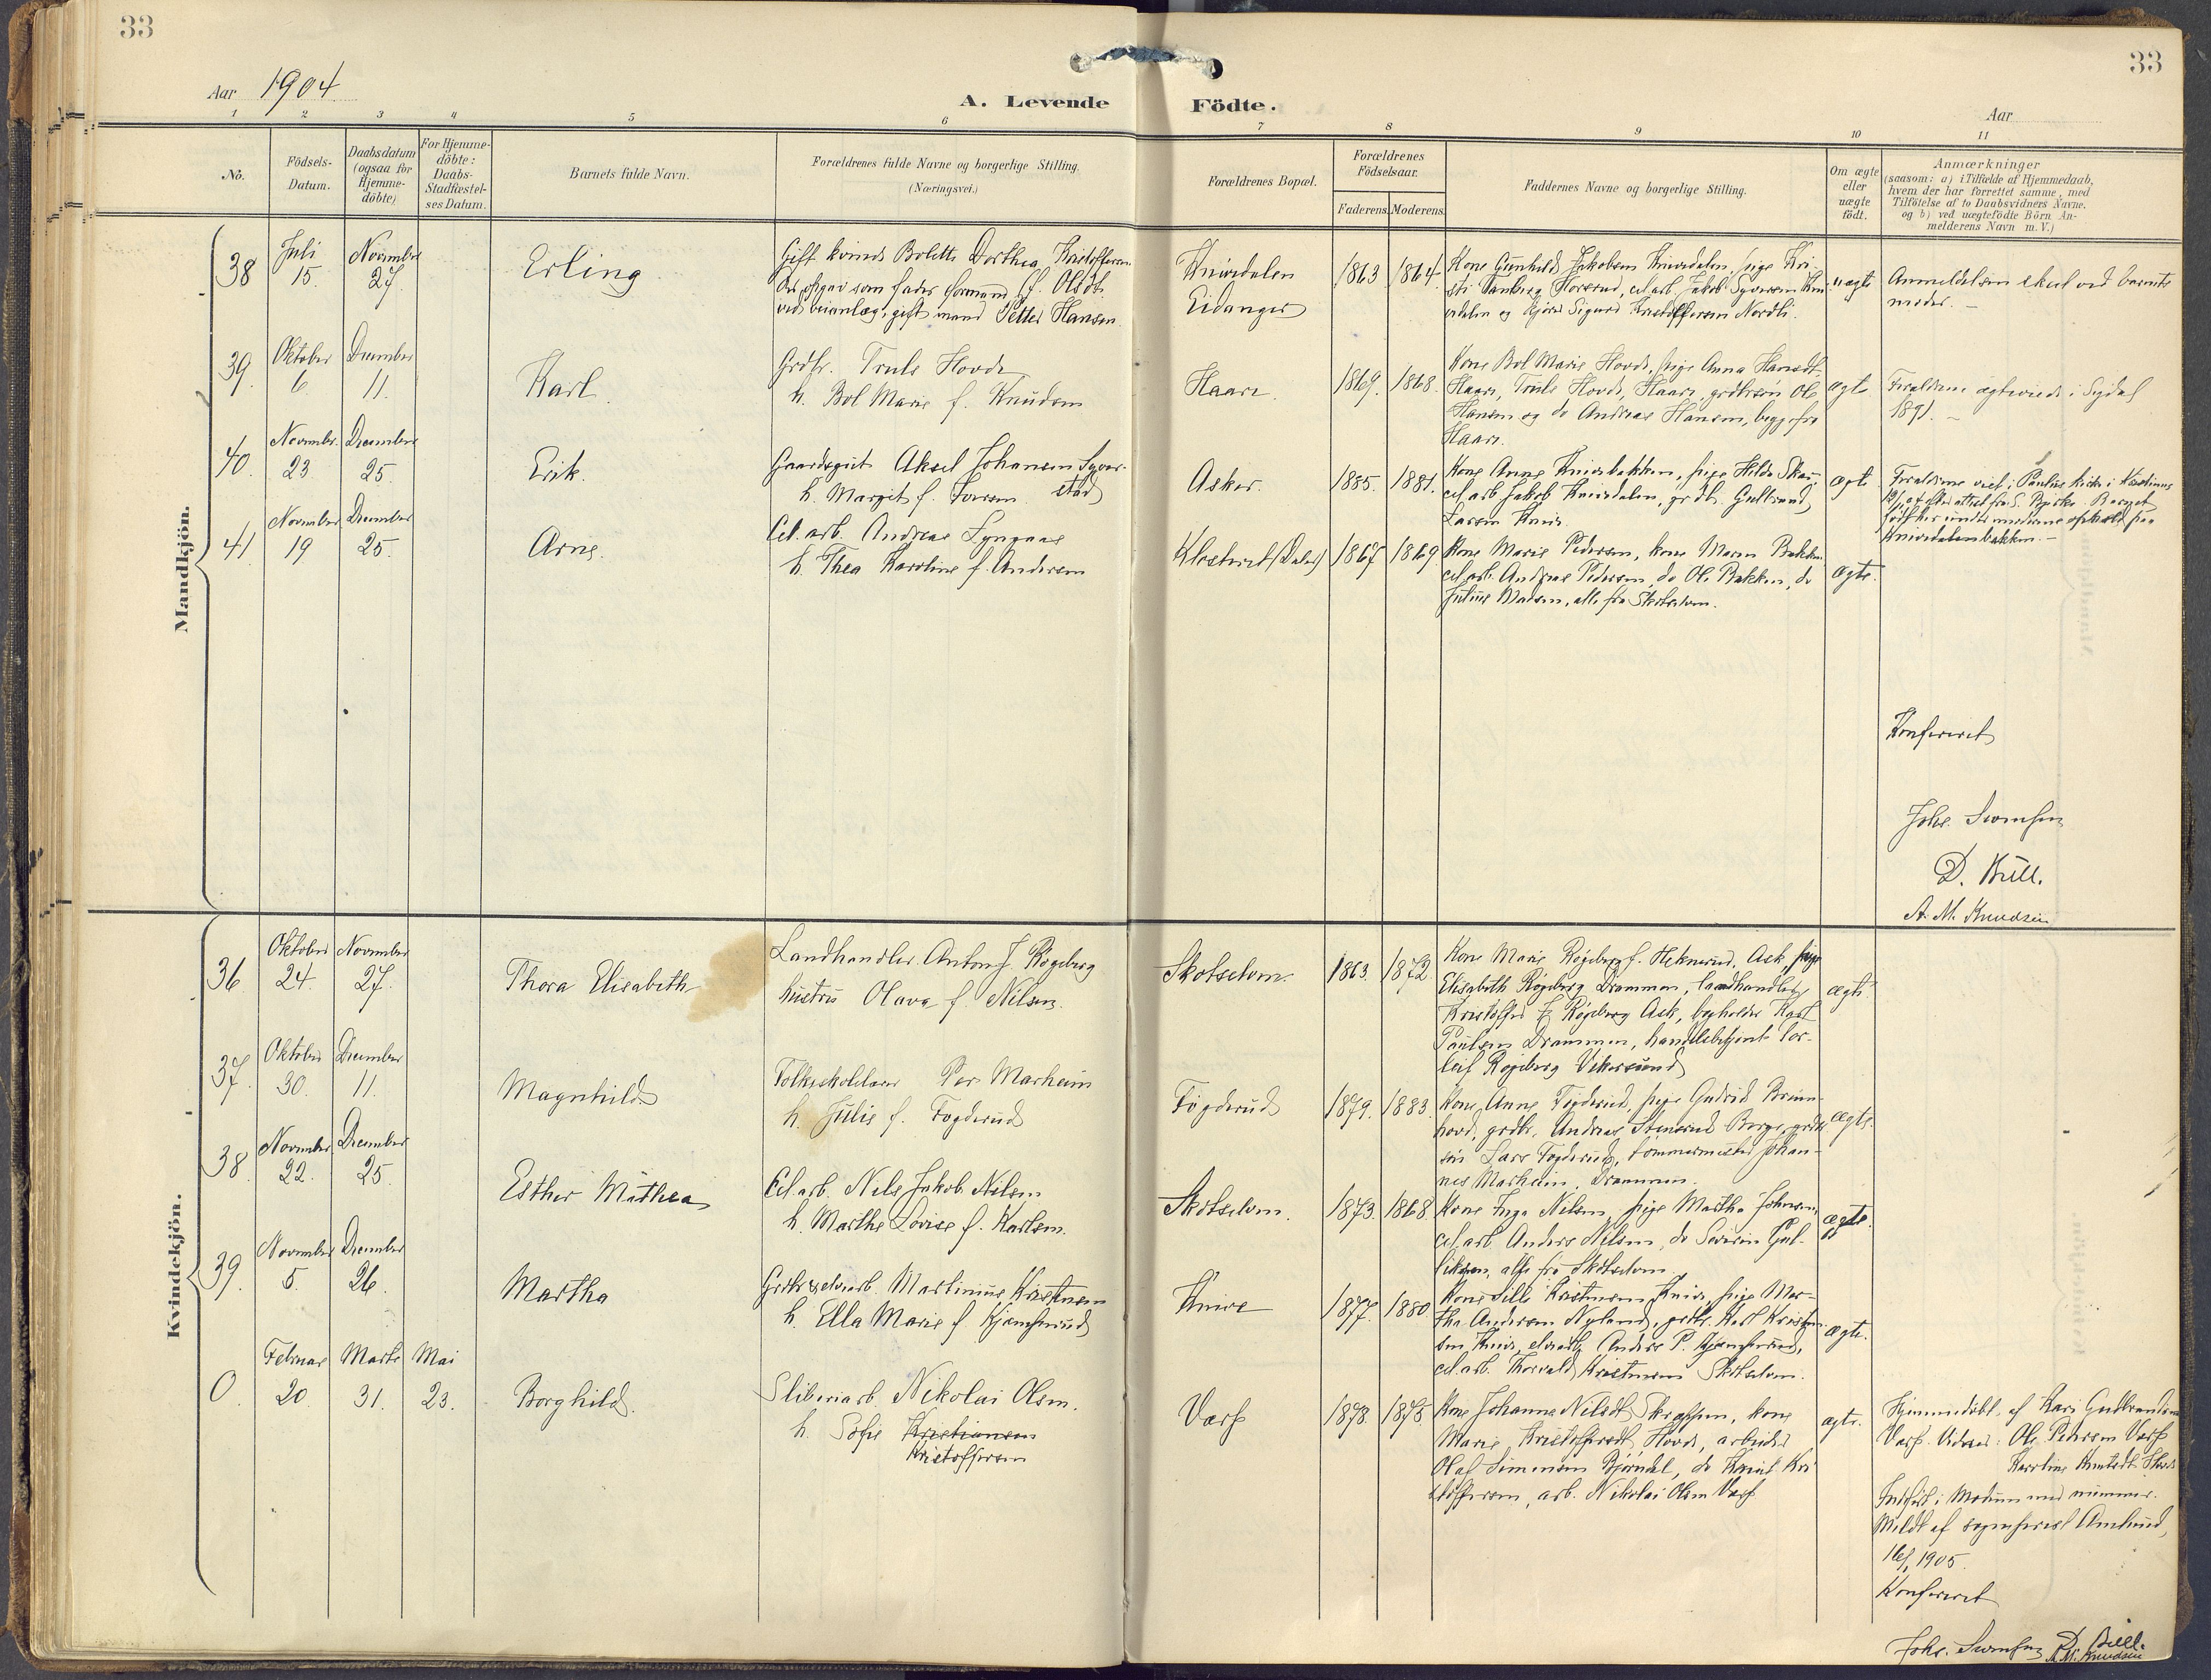 33
33
Aar 1904
A. Levende Födte.
Aar
1 2 3 4 5 6 7 8 9 10 11
No.
Födsels-Datum.
Daabsdatum (ogsaa for Hjemme-döbte)
For Hjemme-döbte: Daabs-Stadfæstel-ses Datum.
Barnets fulde Navn.
Forældrenes fulde Navne og borgerlige Stilling. (Næringsvei.)
Forældrenes Bopæl.
Forældrenes Födselsaar.
Faderens. Moderens.
Faddernes Navne og borgerlige Stilling.
Om ægte eller uægte födt.
Anmærkninger
(saasom: a) i Tilfælde af Hjemmedaab,
hvem der har forrettet samme, med
Tilföielse af to Daabsvidners Navne.
og b) ved uægtefödte Börn An-
melderens Navn m.V.)
Mandkjön.
38 Juli 15. November 27. Erling
Gift kvinde Bolette Dorthea Kristoffersen
som fader formand f. Olsdt.
gift mand Petter Hansen.
Knivedalen
Eidanger
1863 1864.
Kone Gunhild Jakobsen Knivedalen, pige Kri-
sti Horsrud, cel.arb. Jakob Syversen Kni-
vedalen og Sigurd Kristoffersen Nordli.
uægte
Anmeldelsen skeet ved barnets
moder. –
39. Oktober 6 December 11. Karl.
Grdbr. Truls Hovde
h. Bol Marie f. Knudsen
Haare.
1869. 1868.
Kone Bol Marie Hovde, pige Anna Hansdt.
Haare, Truls Hovde, Haare, grdbrsøn Ole
Hansen og do Andreas Hansen, begge fra
Haare.
ægte
Forældrene ægteviede i Sigdal
1891. –
40. November 23 December 25. Erik.
Gaardsgut Aksel Johansen Syver-
stad
h. Margit f. Larsen
Asker.
1885. 1881.
Kone Anne Knivebakken, pige Hilda Skau,
cel.arb. Jakob Knivedalen, grdbr. Gulbrand
Larsen Knive.
ægte
Forældrene viet i Paulus kirke i Kristiania
Barnet
født her under moderens ophold paa
Knivedalenbakken. –
41 November 19 December 25. Arne.
Cel. arb. Andreas Lyngaas
h. Thea Karoline f. Andersen
Klosteret (Dalen)
1867 1869
Kone Marie Pedersen, kone Maren Bakken,
cel.arb. Andreas Pedersen, do Ole Bakken, do
Julius Madsen, alle fra Skotselven.
ægte.
Konfereret
Johs. Svensen
D. Bull.
A. M. Knudsen
Kvindekjön.
36 Oktober 24. November 27. Thora Elisabeth
Landhandler Anton J. Røgeberg
hustru Olava f. Nilsen.
Skotselven.
1863. 1872.
Kone Marie Røgeberg f. Ask, pige
Elisabeth Røgeberg Drammen, landhandler
Kristoffer Røgeberg Ask, bogholder Karl
Paulsen Drammen, handelsbetjent Tor-
leif Røgeberg Vikersund
ægte
37. Oktober 30. December 11. Magnhild
Folkeskolelærer Per Marheim
h. Julie f. Fogderud
Fogderud
1879. 1883.
Kone Anne Fogderud, pige Gudrid Brun-
hovd, grdbr. Andreas Stensrud Berge, grdbr.
søn Lars Fogderud, tømmermester Johan-
nes Marheim, Drammen.
ægte.
38 November 22. December 25. Esther Mathea
Cel.arb. Nils Jakob Nilsen
h. Marthe Lovise f. Karlsen.
Skotselven.
1873. 1868.
Kone Inga Nilsen, pige Martha Johnsen,
cel.arb. Anders Nilsen, do Severin Gul-
liksen, alle fra Skotselven.
ægte.
39. November 5. December 26. Martha
Martinius Kristensen
h. Ella Marie f. Kjemperud
Knive
1877. 1880.
Kone Kristensen Knive, pige Mar-
tha Andersen Nyland, grdbr. Karl Kristen-
sen Knive, Anders P. Kjemperud,
cel.arb. Thorvald Kristensen Skotselven.
ægte.
0. Februar 20. Marts 31. Mai 23. Borghild.
Sliberiarb. Nikolai Olsen.
h. Sofie Kristiansen
Kristoffersen
Værp
1878. 1875.
Kone Johanne Nilsdt. Skrappen, kone
Marie Kristoffersdt Hovde, arbeider
Olaf Simensen Bjørndal, do Knut Kri-
stoffersen, arb. Nikolai Olsen Værp
ægte.
Hjemmedøbt af Kari Gulbrandsen
Værp. Vidner: Ole Pedersen Værp
Karoline
Indført i Modum med nummer.
Meldt af sogneprest Amlund,
1905.
Konfereret
Johs. Svensen D. Bull.
A. M. Knudsen